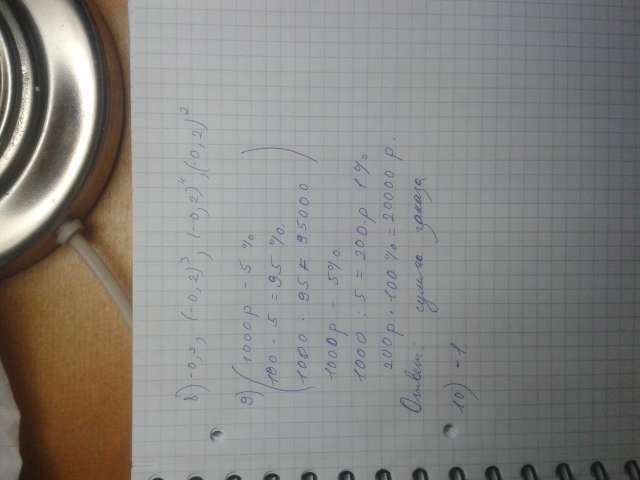 8) -0,2, (-0,2)³, (-0,2)⁴, (-0,2)²
9) (1000р - 5%
100 - 5 = 95%
1000 · 95 = 95000)
1000р - 5%
1000 : 5 = 200р 1%
200р · 100% = 20000 р.
Ответ: сумма заказа
10) -1